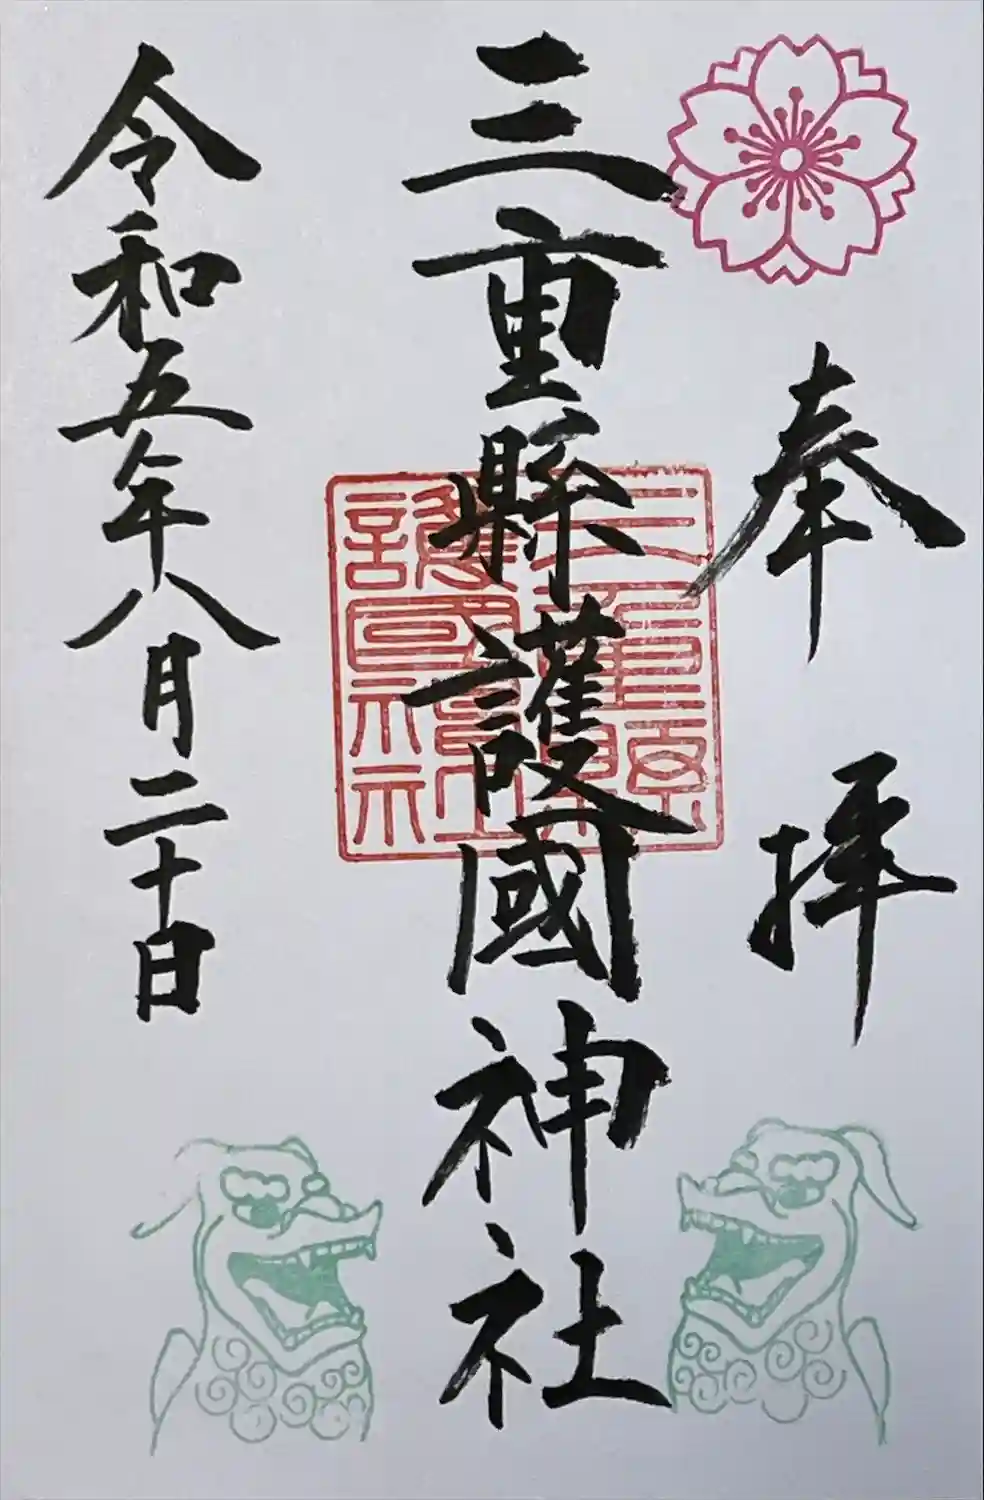 奉拝
三重縣護國神社
三重縣
護國神社
令和五年八月二十日